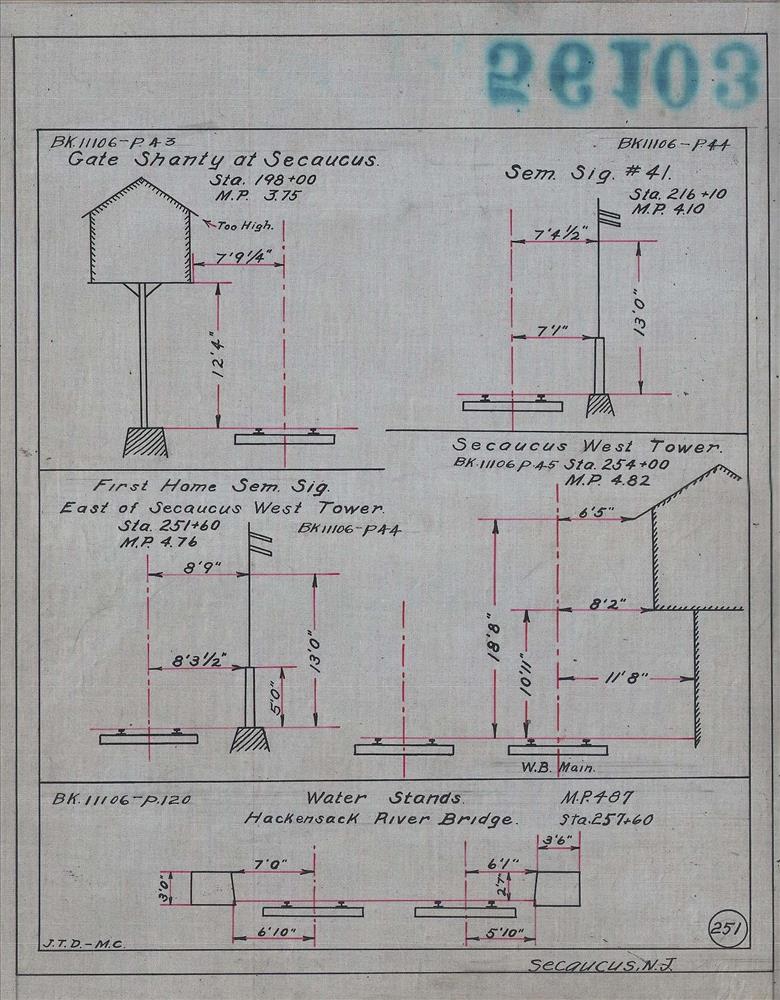 56103
BK.11106-P.A-3
Gate Shanty at Secaucus.
Sta. 198+00
M.P. 3.75
Too High.
7'9 1/4"
12'4"
BK11106-P44
Sem. Sig. #41.
Sta. 216+10
M.P. 4.10
7'4 1/2"
7'1"
13'0"
First Home Sem. Sig.
East of Secaucus West Tower.
Sta. 251+60
M.P. 4.76
BK11106-PA4
8'9"
8'3 1/2"
13'0"
5'0"
Secaucus West Tower.
BK.11106 P A5 Sta. 254+00
M.P. 4.82
6'5"
8'2"
18'8"
10'11"
11'8"
W.B. Main.
BK.11106-P.120
Water Stands.
Hackensack River Bridge.
M.P.487
Sta.257+60
3'6"
7'0"
6'1"
3'0"
2'7"
6'10"
5'10"
J.T.D.-M.C.
251
Secaucus, N.J.